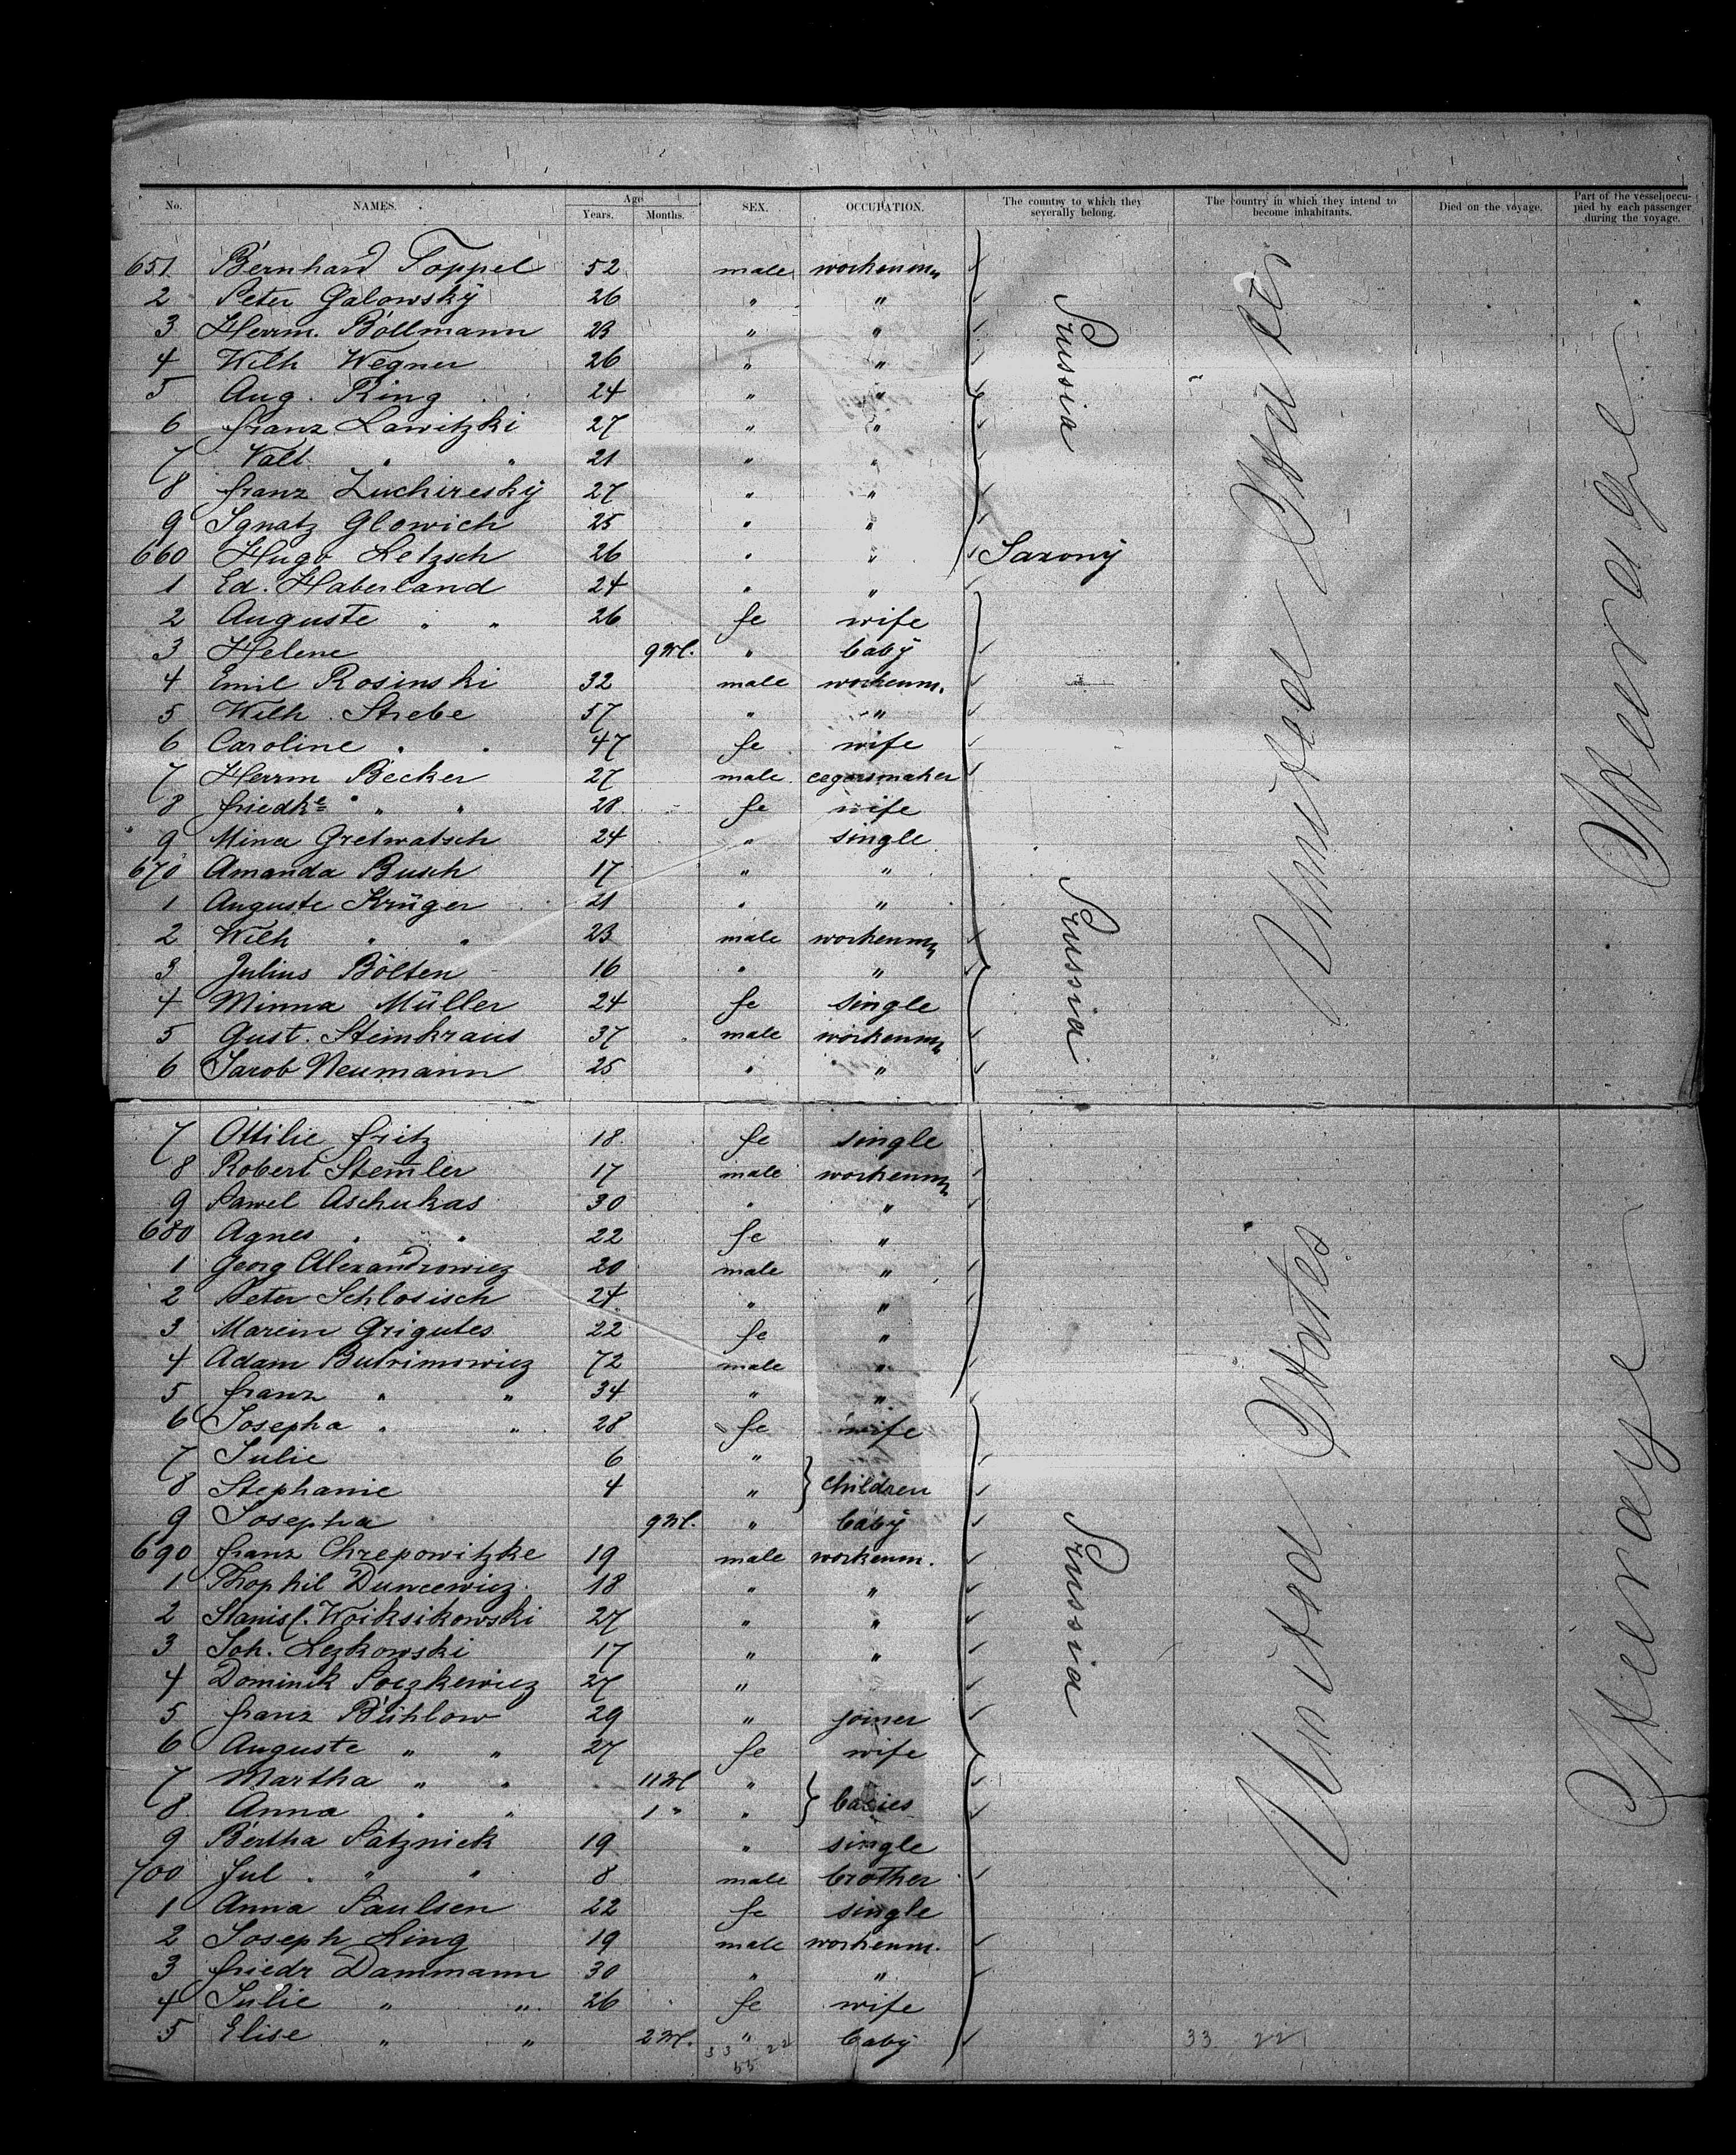 No. NAMES. Age Years. Months. SEX. OCCUPATION. The country to which they severally belong. The country in which they intend to become inhabitants. Died on the voyage. Part of the vessel occupied by each passenger during the voyage.
651. Bernhard Toppel 52 male workenm
2 Peter Galowsky 26 " "
3 Herrm. Böllmann 23 " "
4 Wilh Wegner 26 " "
5 Aug. Ring 24 " "
6 Franz Lawitzki 27 " "
7 Valt. " " 21 " "
8 Franz Zuchiresky 27 " "
9 Ignatz Glowich 25 " "
660 Hugo Letzsch 26 " " Saxony
1 Ed. Haberland 24 " "
2 Auguste " " 26 fe wife
3 Helene 9 M. " baby
4 Emil Rosinski 32 male workenm.
5 Wilh. Strebe 57 " "
6 Caroline " " 47 fe wife
7 Herrm Becker 27 male cegarsmaker
8 Friedke " " 28 fe wife
9 Mina Gretwatsch 24 " single
670 Amanda Busch 17 " "
1 Auguste Krüger 21 " "
2 Wilh " " 23 male workenm
3 Julius Bölten 16 " "
4 Minna Müller 24 fe single
5 Gust. Steinkraus 37 male workenm
6 Jacob Neumann 25 " "
Prussia
Prussia
United States
Steerage
7 Ottilie Fritz 18 fe single
8 Robert Stem̄ler 17 male workenm
9 Pawel Aschukas 30 " "
680 Agnes " " 22 fe "
1 Georg Alexandrowicz 20 male "
2 Peter Schlosisch 24 " "
3 Marcin Grigutes 22 fe "
4 Adam Butrimowicz 72 male "
5 Franz " " 34 " "
6 Josepha " " 28 fe wife
7 Julie 6 "
8 Stephanie 4 " } children
9 Josepha 9 M. " baby
690 Franz Chrepowitzke 19 male workenm.
1 Thophil Duncewicz 18 " "
2 Stanisl. Woiksikowski 27 " "
3 Joh. Lezkowski 17 " "
4 Dominik Poczkewicz 27 "
5 Franz Bühlow 29 " joiner
6 Auguste " " 27 fe wife
7 Martha " " 11 M "
8 Anna " " 1 " " } babies
9 Bertha Patznick 19 " single
700 Jul. " " 8 male brother
1 Anna Paulsen 22 fe single
2 Joseph Ling 19 male workenm.
3 Friedr Dammann 30 " "
4 Julie " " 26 fe wife
5 Elise " " 2 M. " baby
33 22 33 22
55
Prussia
United States
Steerage